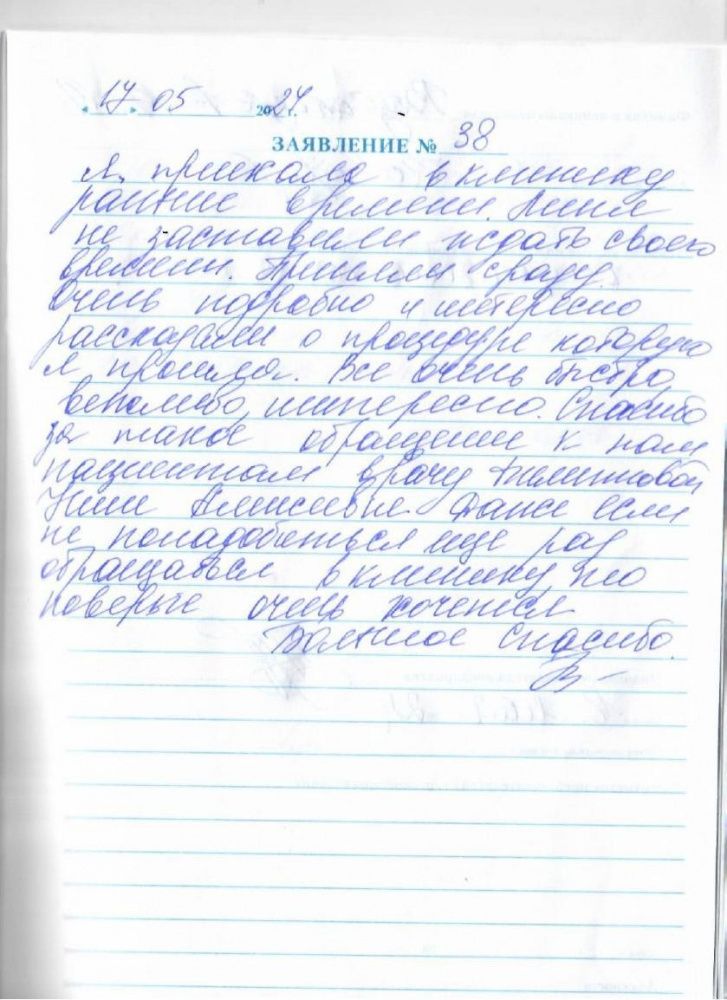 « 17 » 05 2024 г.
ЗАЯВЛЕНИЕ № 38
Я, приехала в клинику
раньше времени. Меня
не заставили ждать своего
времени. Приняли сразу.
Очень подробно и интересно
рассказали о процедуре которую
я прошла. Все очень быстро,
вежливо, интересно. Спасибо
за такое обращение к нам
пациентам врачу
Нине Алексеевне. Даже если
не понадобиться еще раз
обращаться в клинику, то
поверьте очень хочется
Большое Спасибо.